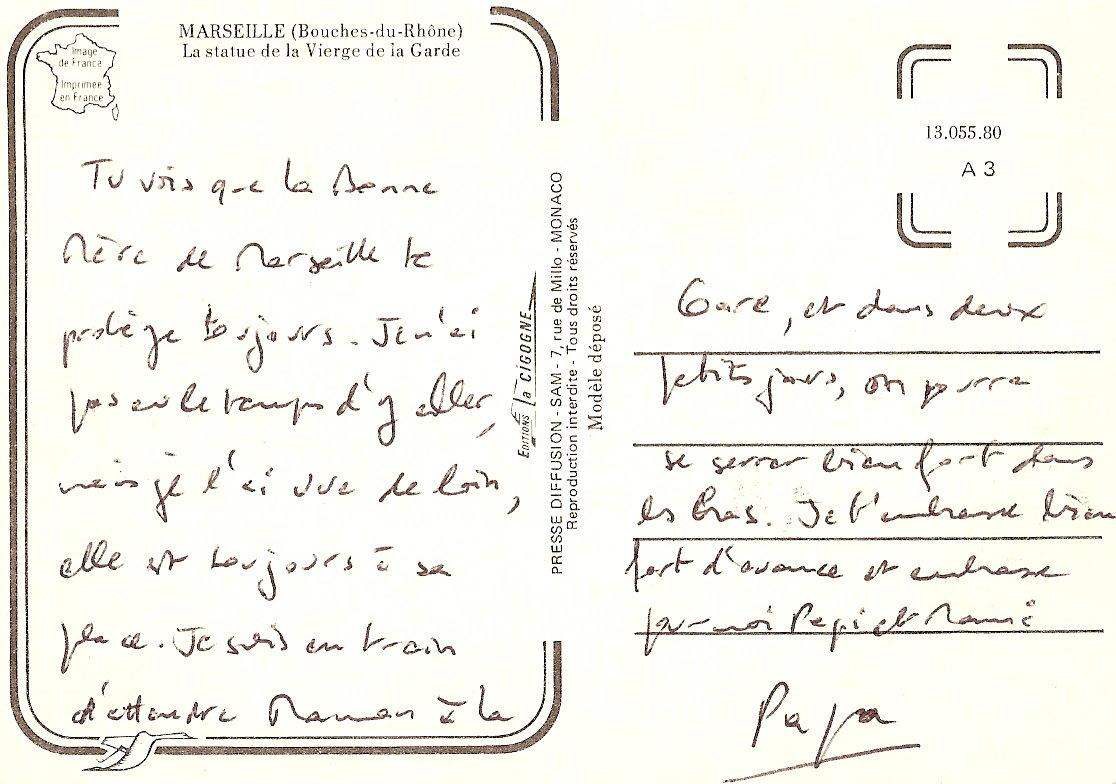 MARSEILLE (Bouches-du-Rhône)
La statue de la Vierge de la Garde
Image
de France
Imprimée
en France
Tu vois que la Bonne
Mère de Marseille te
protège toujours. Je n'ai
pas eu le temps d'y aller,
mais je l'ai vue de loin,
elle est toujours à sa
place. Je suis en train
d'attendre Maman à la
EDITIONS la CIGOGNE
PRESSE DIFFUSION - SAM - 7, rue de Millo - MONACO
Reproduction interdite - Tous droits réservés
Modèle déposé
13.055.80
A 3
Gare, et dans deux
petits jours, on pourra
se serrer bien fort dans
les bras. Je t'embrasse bien
fort d'avance et embrasse
pour moi Papi et Mamie
Papa